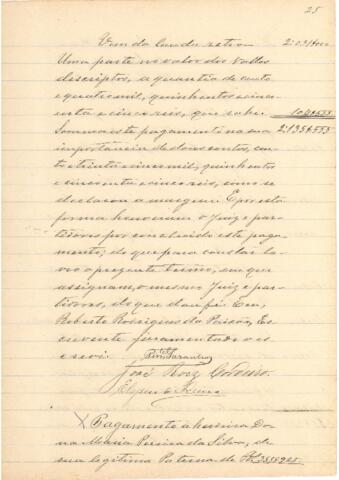 25
Vem do lauda retro 2:031$000
Uma parte no valor dos vallos
descriptos, a quantia de cento
e quatro mil, quinhentos e cinco-
enta e cinco reis, que sahe 104$555
Somma este pagamento na sua 2:135$555
importancia de dous contos, cen-
to e trinta e cinco mil, quinhentos
e cincoenta e cinco reis, como se
declarou a margem. E por esta
forma houveram o Juiz e par-
tidores por concluido este paga-
mento; do que para constar la-
vro o presente termo, em que
assignam, o mesmo Juiz e par-
tidores, do que dou fé. Eu,
Roberto Rodrigues da Paixão, Es-
crevente juramentado o es-
crevi.
José Roiz Cordeiro.
Pagamento á herdeira Do-
na Maria Pereira da Silva, de
sua legitima Paterna de Rs 355$925